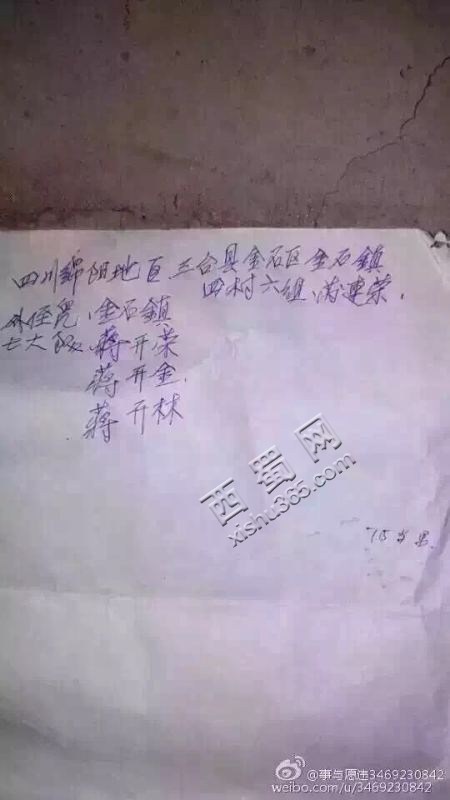 四川绵阳地百三台县金石区金石鎮
四村六组,蒋連荣.
外侄児,金石鎮
七大队,蒋开荣
蒋开金.
蒋开林
西蜀网
xishu365.com
75岁 男.
@事与愿违3469230842
weibo.com/u/3469230842